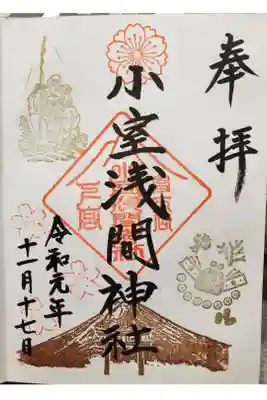 奉拝
小室浅間神社
令和元年
十一月十七日